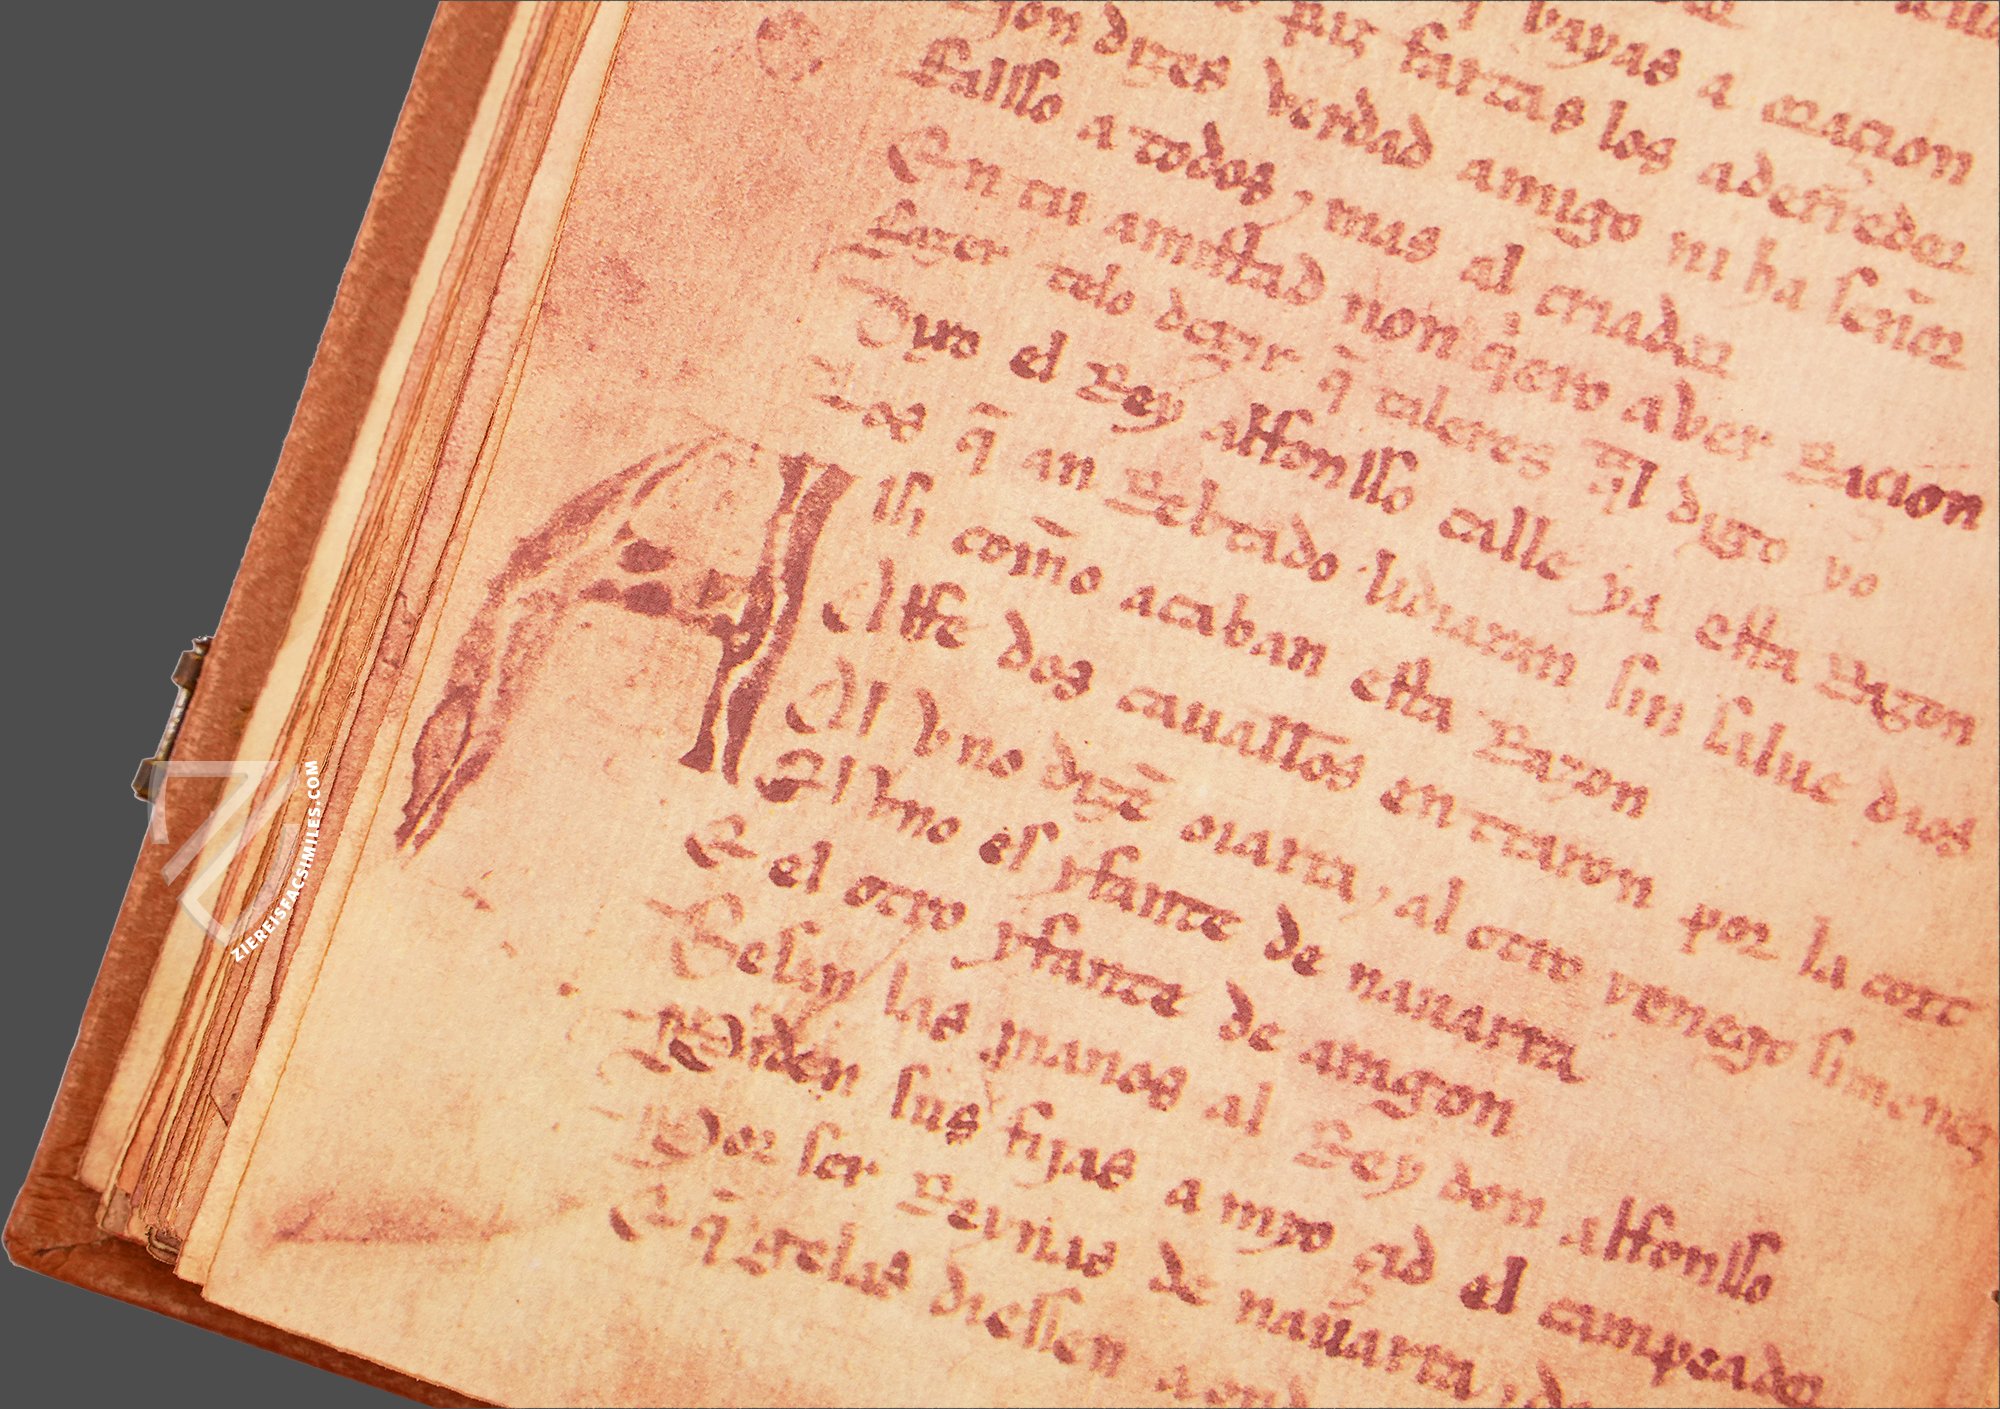 vayas a oracion
par fartas los aderredor
Non dizes verdad amigo ni ha señor
Falsso a todos, mas al criador
En tu amistad non q̃ero aver Racion
Fazer telo dezir q̃ tal eres q̃l digo yo
Dixo el Rey alffonsso calle ya esta Razon
Los q̃ an Rebtado lidiaran sin salue dios
Assi com̃o acaban esta Razon
Affe dos cauallos entraron por la cort
Al vno dizẽ oiarra, al otro yenego simenez
El vno es yfante de nauarra
E el otro yfante de aragon
Besan las manos al Rey don alffonsso
Piden sus fijas a myo çid el campeador
Por ser Reynas de nauarra, de
E q̃ ge las diessen a ond
ZIEREISFACSIMILES.COM